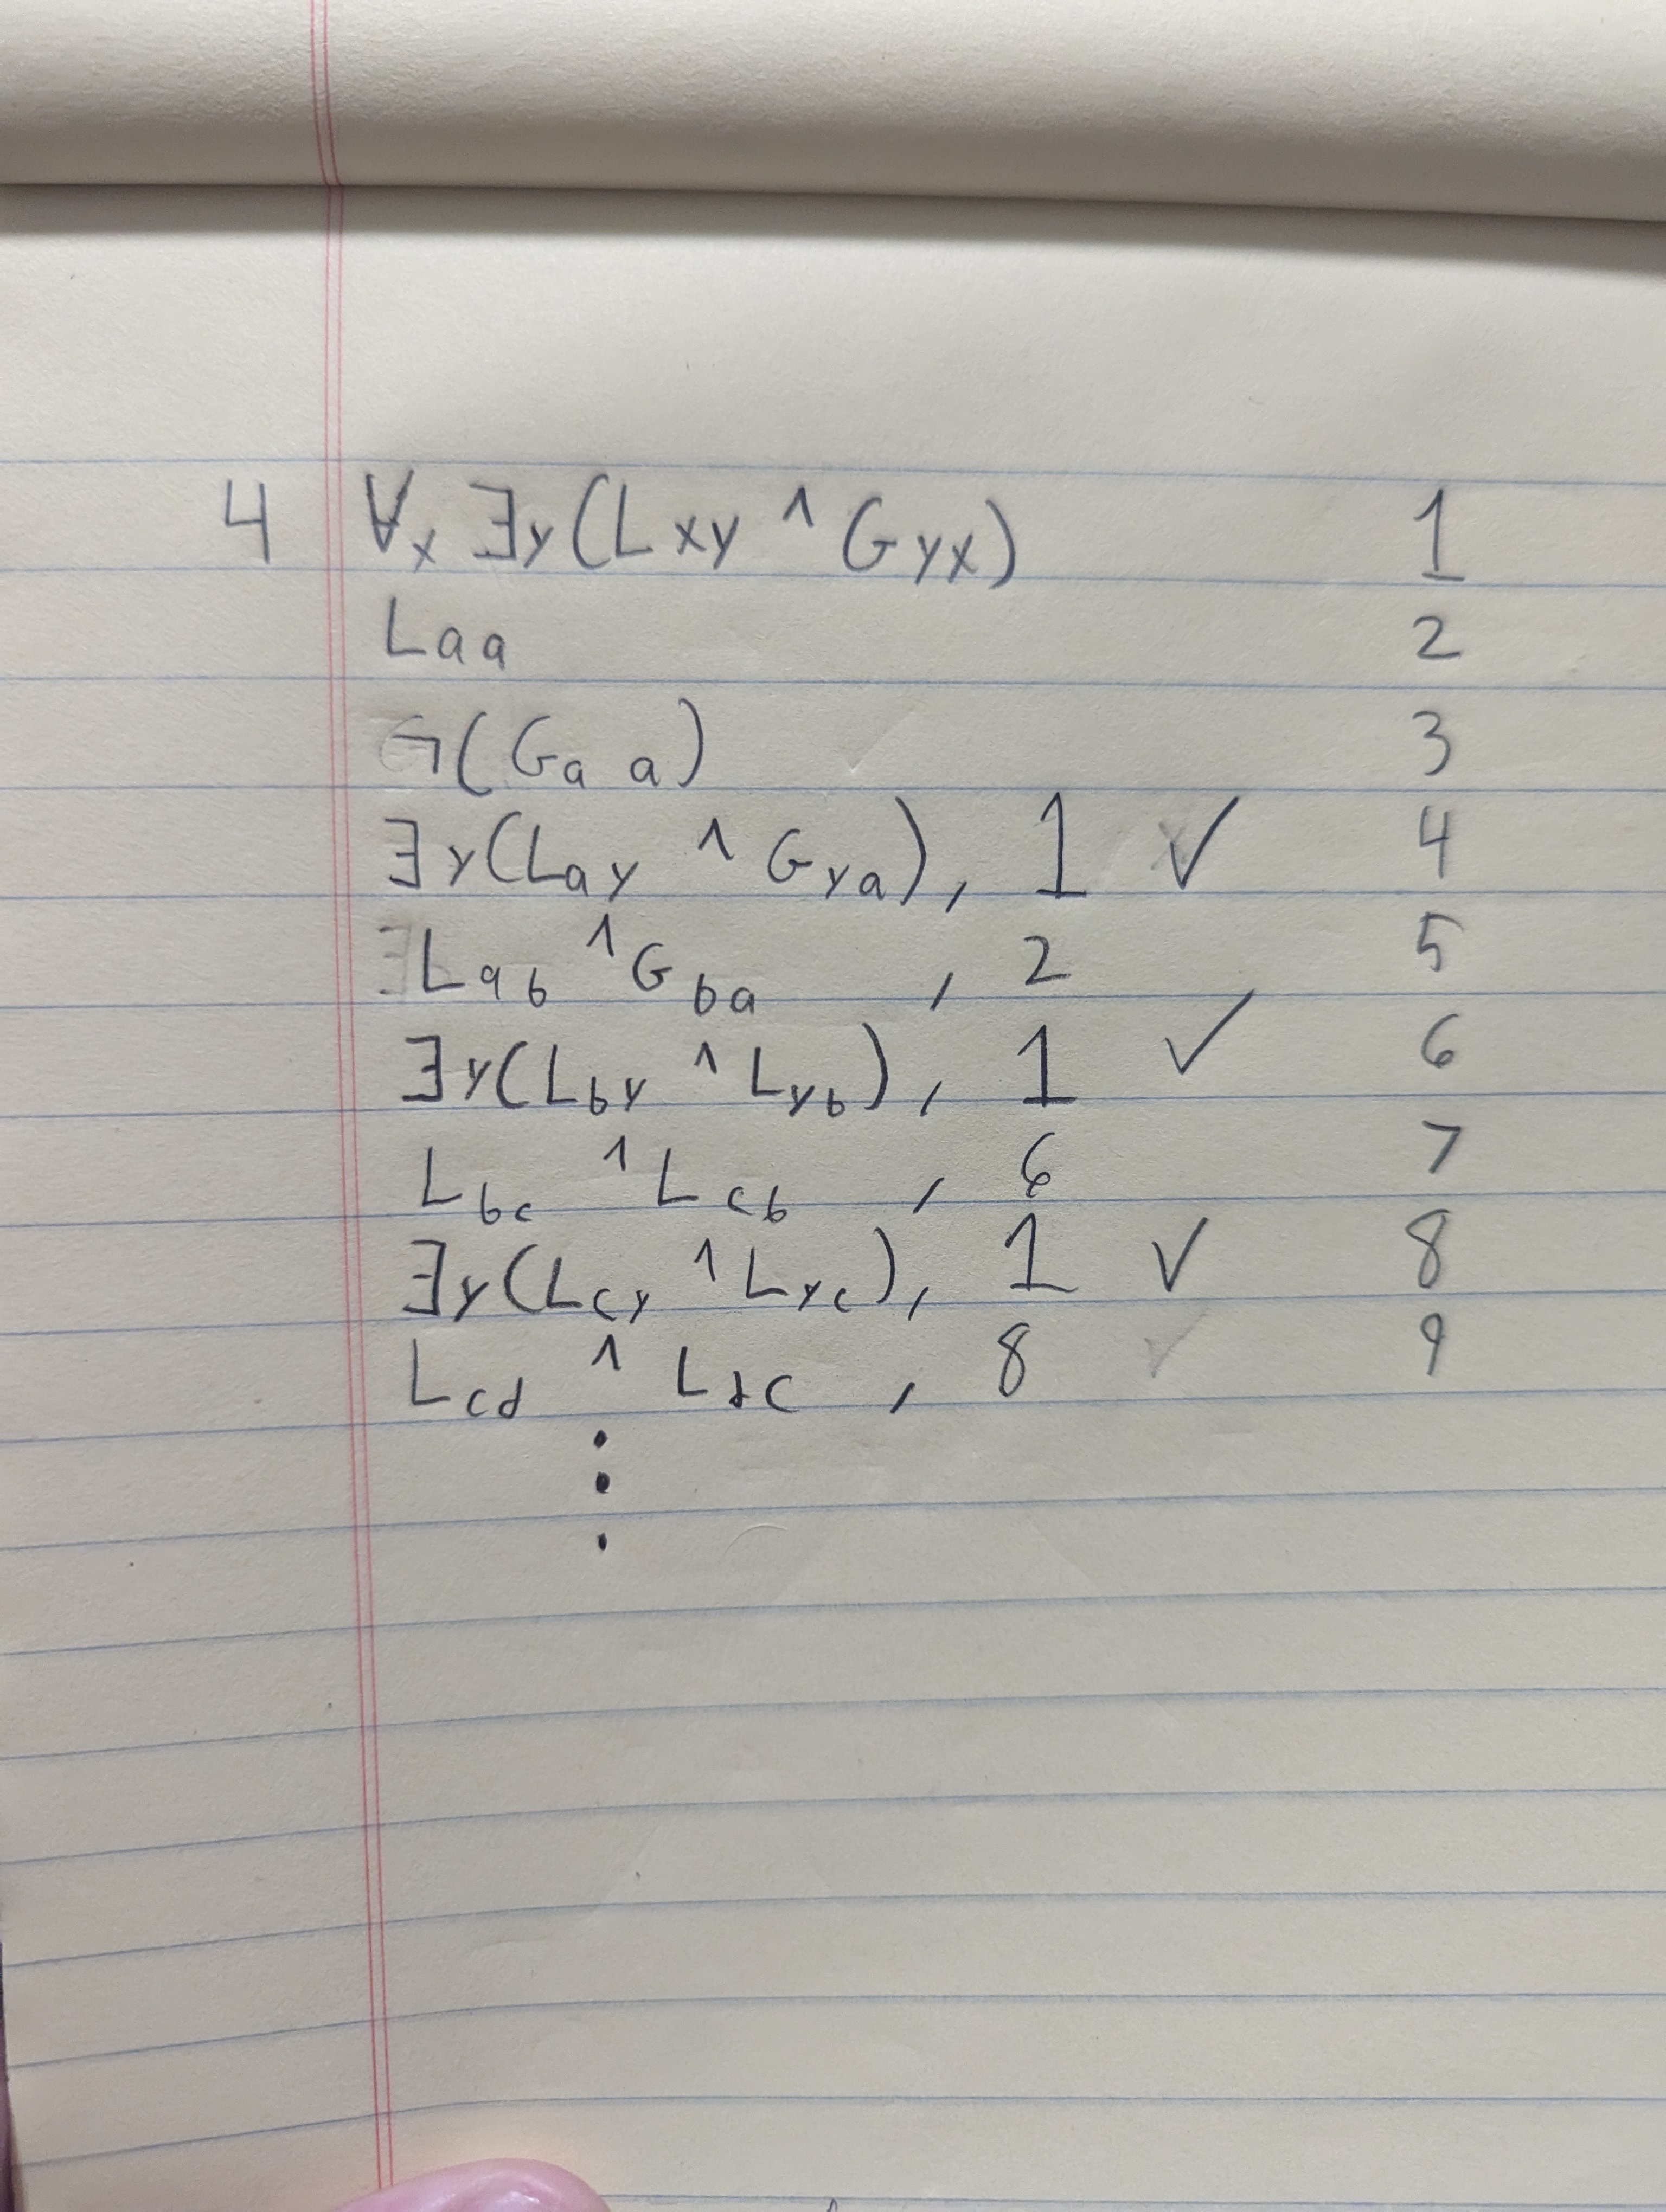 4 ∀x ∃y(Lxy ∧ Gyx) 1
Laa 2
¬(Gaa) 3
∃y(Lay ∧ Gya), 1 ✓ 4
Lab ∧ Gba , 2 5
∃y(Lby ∧ Lyb), 1 ✓ 6
Lbc ∧ Lcb , 6 7
∃y(Lcy ∧ Lyc), 1 ✓ 8
Lcd ∧ Ldc , 8 9
⋮